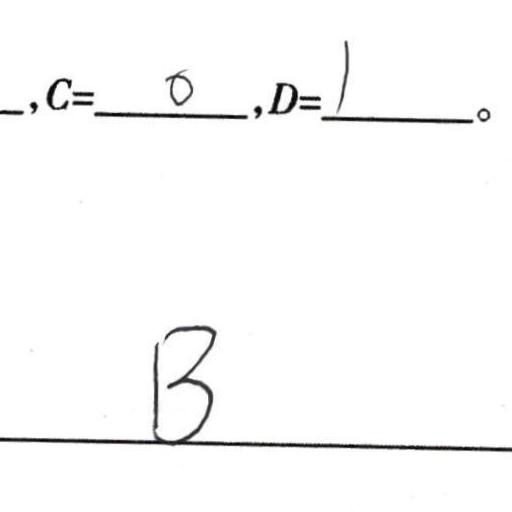 _,C=0,D=1。
B